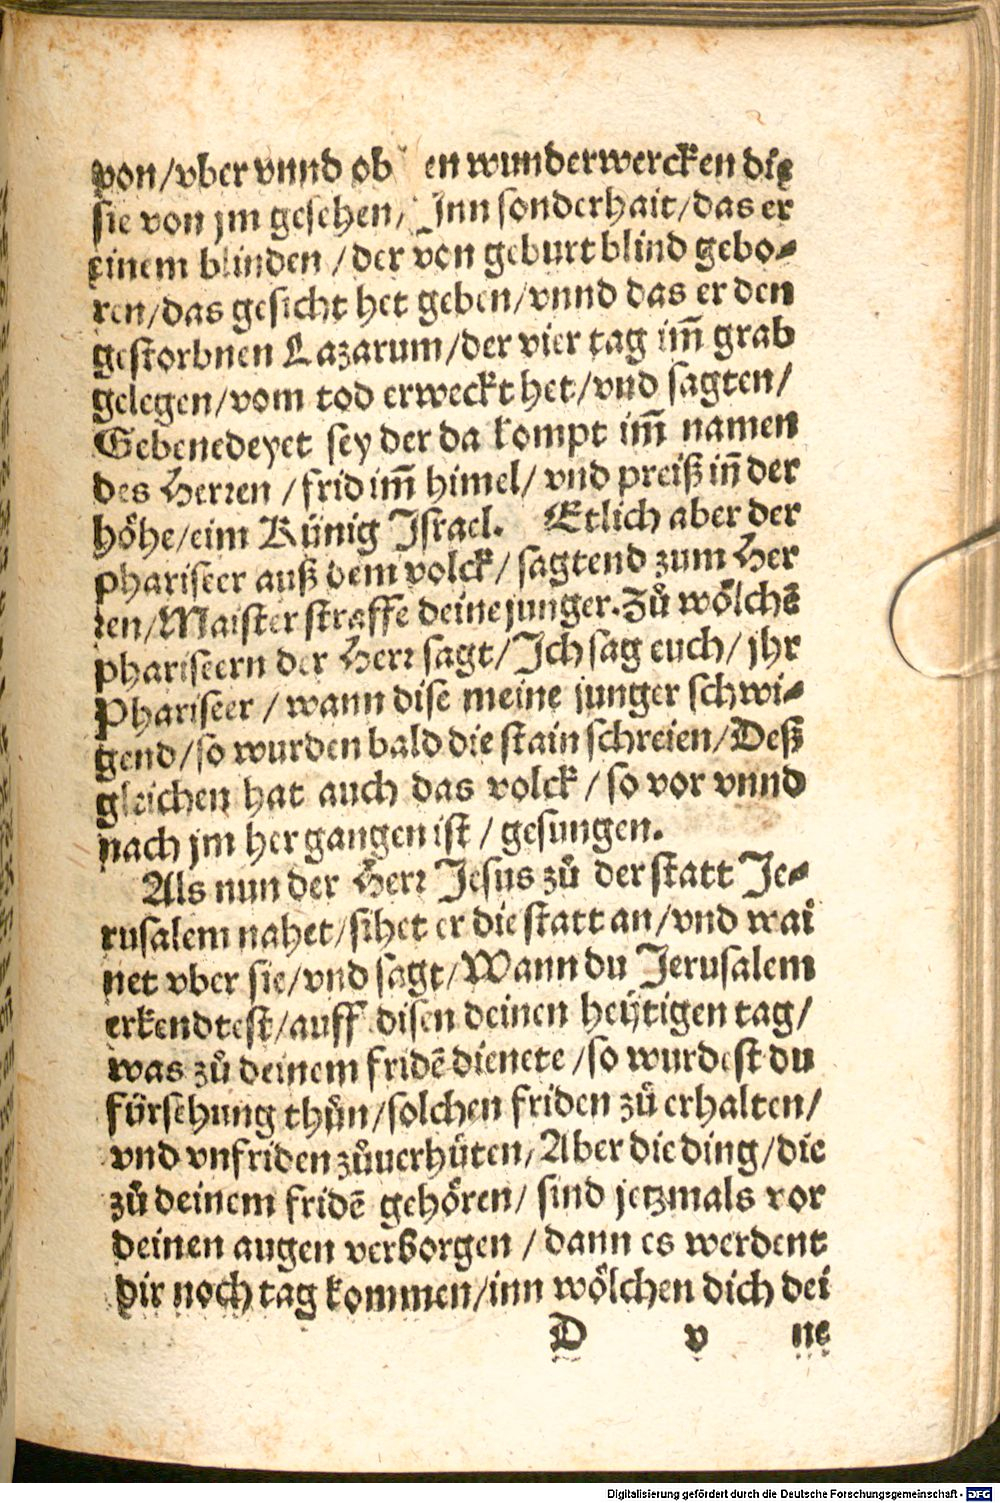 von/vber vnnd ob en wunderwercken die
sie von jm gesehen/ Jnn sonderhait/das er
einem blinden /der von geburt blind gebo-
ren/das gesicht het geben/vnnd das er den
gestorbnen Lazarum/der vier tag im̄ grab
gelegen/vom tod erweckt het/vnd sagten/
Gebenedeyet sey der da kompt im̄ namen
des Herren /frid im̄ himel/ vnd preiß in̄ der
höhe/eim Künig Jsrael. Etlich aber der
phariseer auß dem volck/ sagtend zum Her
ren/Maister straffe deine junger. Zů wölchē
phariseern der Herr sagt/Jch sag euch/ jhr
Phariseer / wann dise meine junger schwi-
gend/so wurden bald die stain schreien/Deß
gleichen hat auch das volck /so vor vnnd
nach jm her gangen ist / gesungen.
Als nun der Herr Jesus zů der statt Je-
rusalem nahet/sihet er die statt an/vnd wai
net vber sie/vnd sagt/Wann du Jerusalem
erkendtest/auff disen deinen heÿtigen tag/
was zů deinem fridē dienete /so wurdest du
fürsehung thůn/solchen friden zů erhalten/
vnd vnfriden zůuerhüten/Aber die ding/die
zů deinem fridē gehören/ sind jetzmals vor
deinen augen verborgen / dann es werdent
dir noch tag kommen/inn wölchen dich dei
D v ne
Digitalisierung gefördert durch die Deutsche Forschungsgemeinschaft - DFG